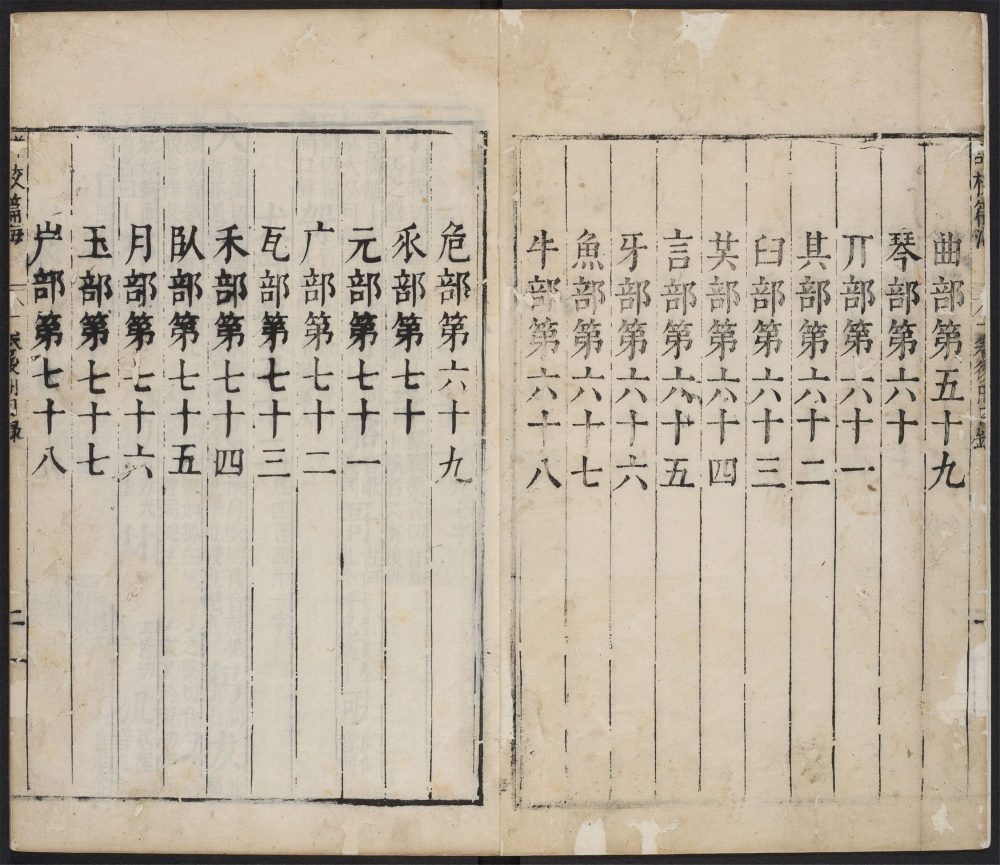 曲部第五十九
琴部第六十
丌部第六十一
其部第六十二
臼部第六十三
言部第六十五
牙部第六十六
魚部第六十七
牛部第六十八
危部第六十九
部第七十
元部第七十一
广部第七十二
瓦部第七十三
禾部第七十四
臥部第七十五
月部第七十六
玉部第七十七
部第七十八
校篇海
二